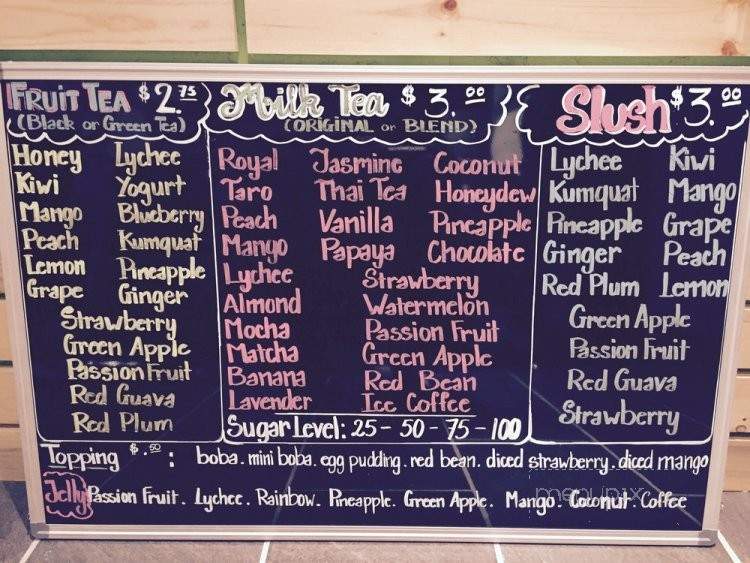 FRUIT TEA $2.75
(Black or Green Tea)
Honey Lychee
Kiwi Yogurt
Mango Blueberry
Peach Kumquat
Lemon Pineapple
Grape Ginger
Strawberry
Green Apple
Passion Fruit
Red Guava
Red Plum
Milk Tea $3.00
(ORIGINAL or BLEND)
Royal Jasmine Coconut
Taro Thai Tea Honeydew
Peach Vanilla Pineapple
Mango Papaya Chocolate
Lychee Strawberry
Almond Watermelon
Mocha Passion Fruit
Matcha Green Apple
Banana Red Bean
Lavender Ice Coffee
Sugar Level: 25 - 50 - 75 - 100
Slush $3.00
Lychee Kiwi
Kumquat Mango
Pineapple Grape
Ginger Peach
Red Plum Lemon
Green Apple
Passion Fruit
Red Guava
Strawberry
Topping $.50 : boba. mini boba. egg pudding. red bean. diced strawberry. diced mango
Jelly Passion Fruit. Lychee. Rainbow. Pineapple. Green Apple. Mango. Coconut. Coffee
menupix